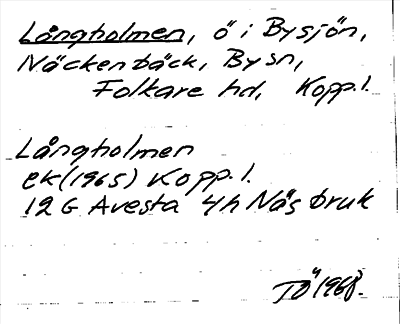 Långholmen, ö i Bysjön,
Näckenbäck, By sn,
Folkare hd, Kopp. l.
Långholmen
ek (1965) Kopp. l.
12 G Avesta 4h Näs bruk
TÖ 1968.